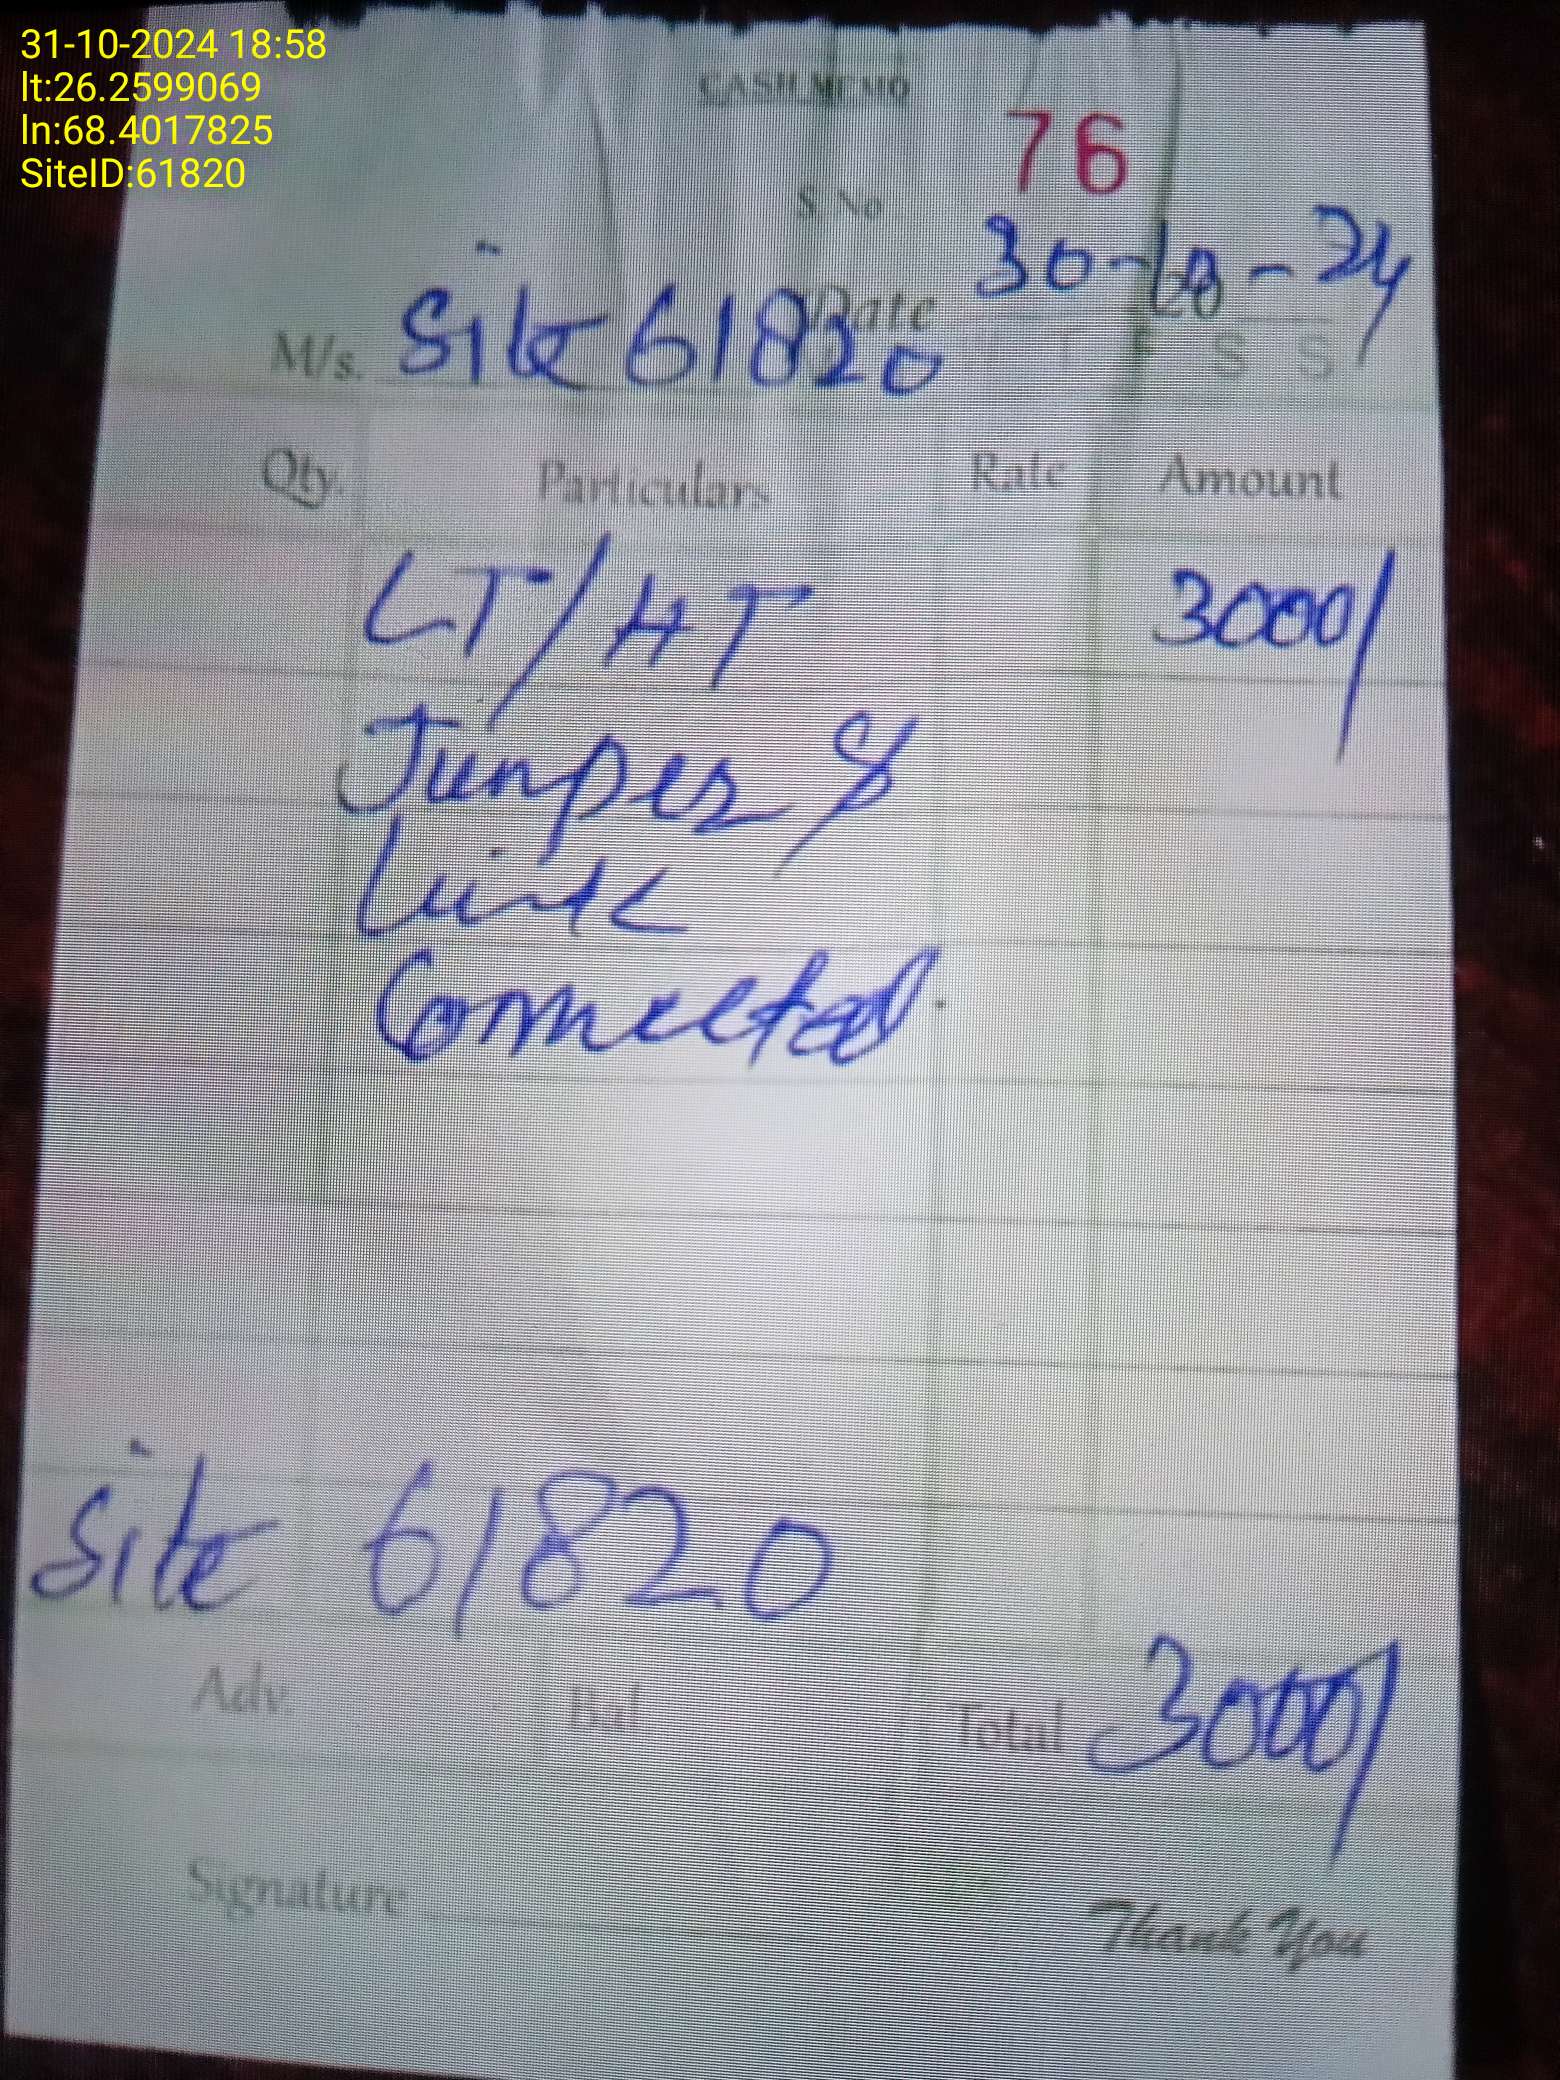 31-10-2024 18:58
lt:26.2599069
ln:68.4017825
SiteID:61820
CASH MEMO
S No 76
Date 30-10-24
M/s. Site 61820
Qty. Particulars Rate Amount
LT/HT 3000/
Jumper &
Link
Connected.
Site 61820
Adv. Bal Total 3000/
Signature
Thank You